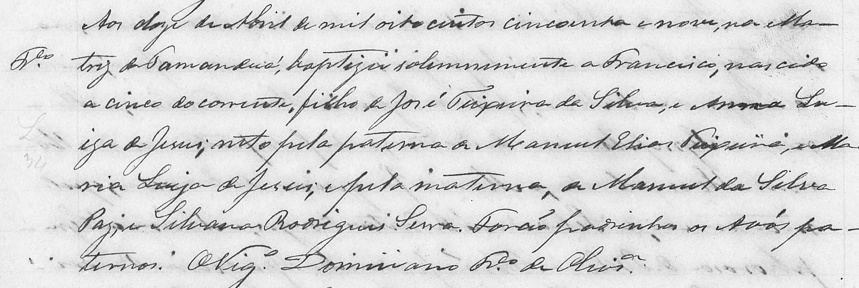 Aos doze de Abril de mil oito centos cincoenta e nove, na Ma-
Fr.co triz de Tamanduá, baptizei solemnemente a Francisco, nascido
a cinco do corrente, filho de José Teixeira da Silva, e Anna Lu-
iza de Jesus; neto pela paterna de Manuel Elias Teixeira, e Ma-
ria Luiza de Jesus; e pela materna, de Manuel da Silva
Paz, e Silvana Rodrigues Serra. Forão padrinhos os Avós pa-
ternos. O Vig.o Domiciano Fr.co de Oliv.ra